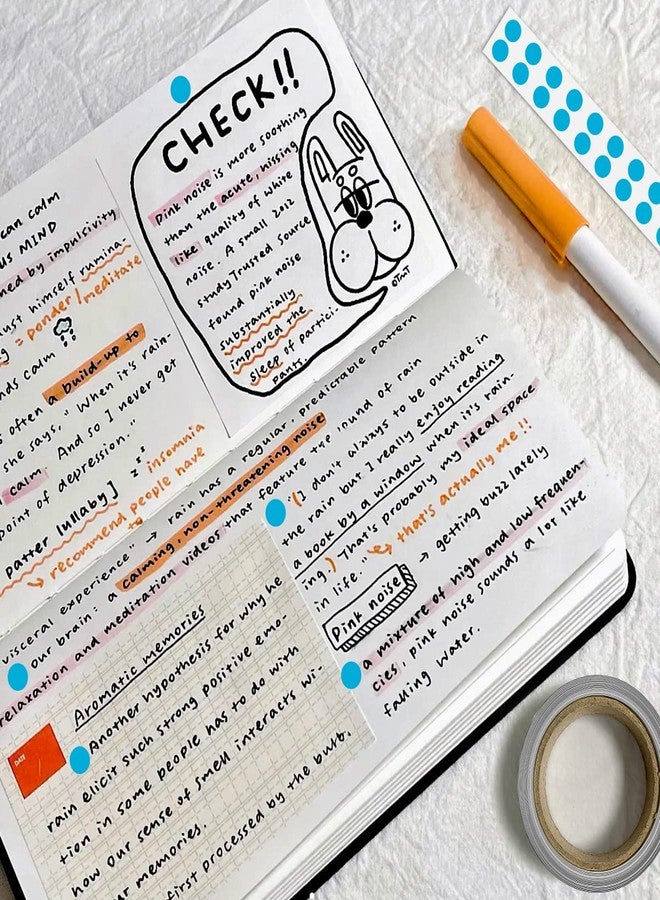 can calm
US MIND
ned by impulsivity
just himself rumina-
= ponder/meditate
nds calm
s often a build-up to
she says, "When it's rain-
calm. And so I never get
point of depression."
patter [lullaby] zzz insomnia
↳ recommend people have
to
CHECK!!
Pink noise is more soothing
than the acute, hissing
like quality of white
noise. A small 2012
study Trusted Source
found pink noise
substantially
improved the
sleep of partici-
pants.
visceral experience" → rain has a regular, predictable pattern
our brain: a calming, non-threatening noise
relaxation and meditation videos that feature the sound of rain
Aromatic memories
DATE
Another hypothesis for why he
rain elicit such strong positive emo-
tion in some people has to do with
how our sense of smell interacts wi-
ur memories.
first processed by the bulb.
"(I don't always to be outside in
the rain but I really enjoy reading
a book by a window when it's rain-
ing.) That's probably my ideal space
in life." ↳ that's actually me!!
Pink noise → getting buzz lately
a mixture of high and low frequen-
cies, pink noise sounds a lot like
falling water.